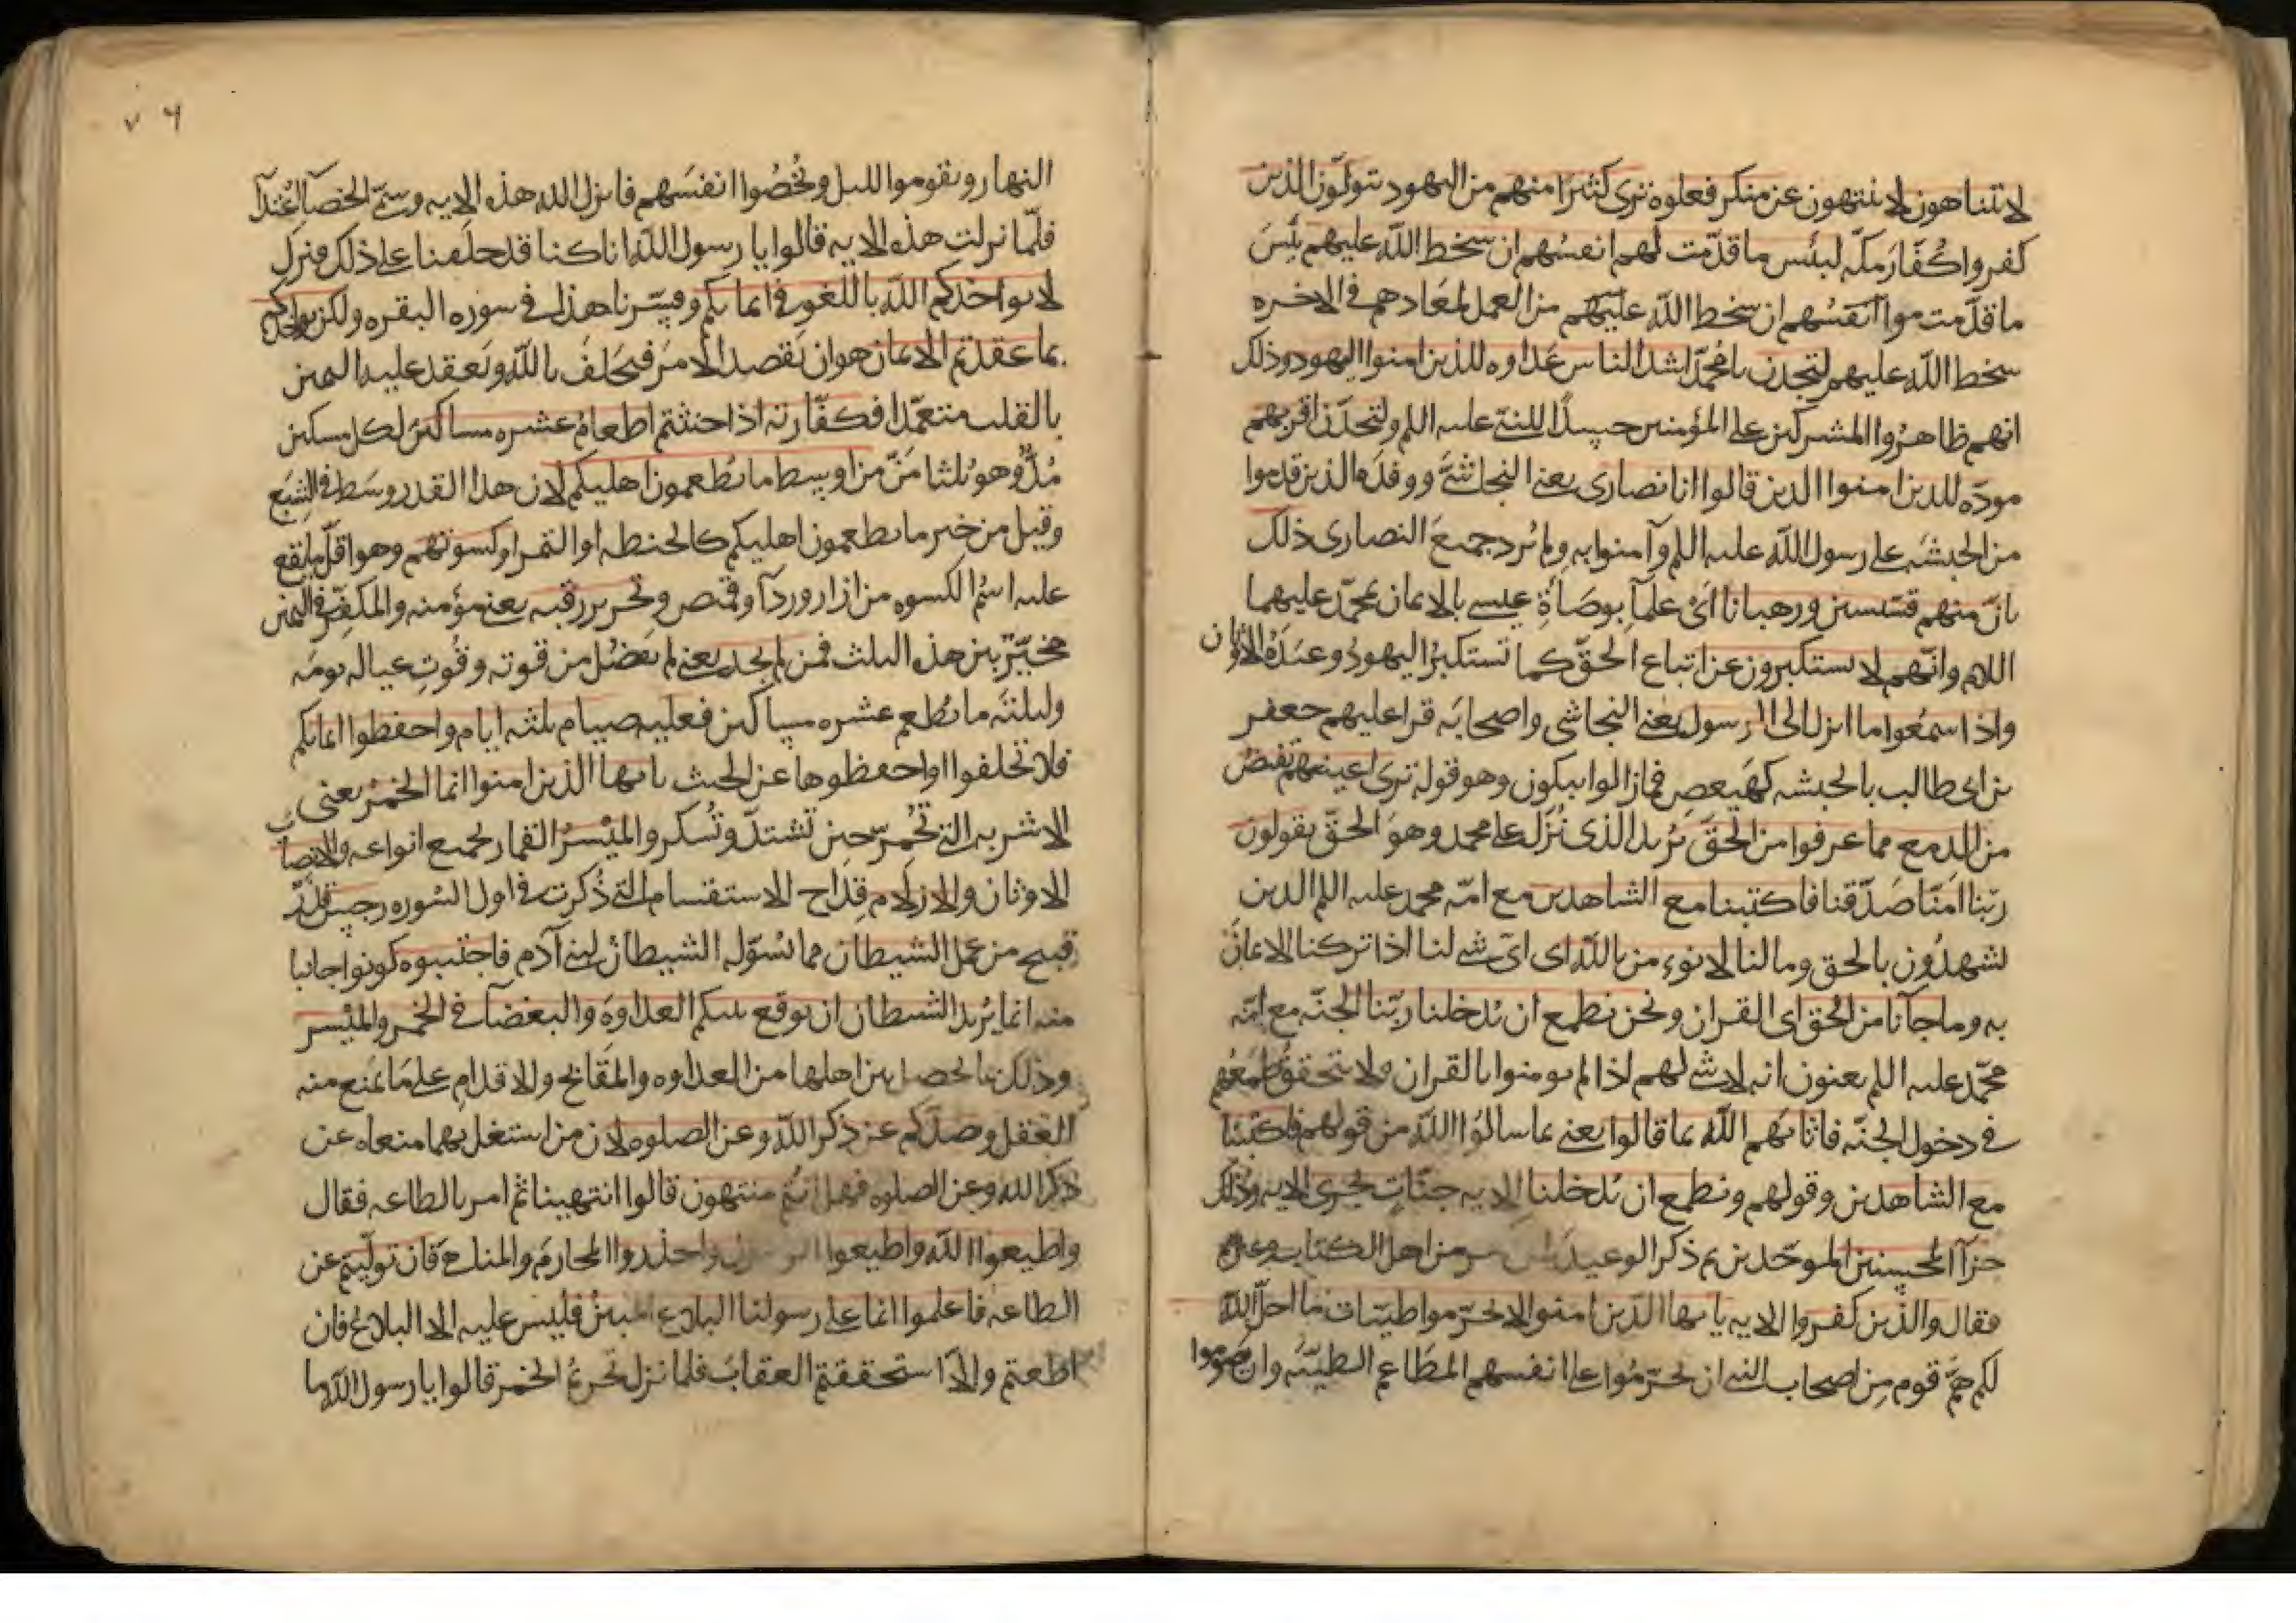 لا يتناهون لا ينتهون عن منكر فعلوه ترى كثيرا منهم من اليهود يتولّون الذين
كفروا كُفّارَ مكّه لبئس ما قدّمت لهم انفسُهم ان سخط الله عليهم بئسَ
ما قدّمت موا انفسُهم ان سخط الله عليهم من العمل لمعادهم في الاخره
سخط الله عليهم لتجدن يا محمّد اشد الناس عداوه للذين امنوا اليهود وذلك
انهم ظاهرُوا المشركين على المؤمنين حسدًا للنبى عليه اللم ولتجدنّ اقربهم
مودّه للذين امنوا الذين قالوا انا نصارى يعنى النجاشىَّ ووفدَه الذين قدموا
من الحبشَه على رسول الله عليه اللم وآمنوا به ولم يُرد جميعَ النصارى ذلك
بانّ منهم قسّيسين ورهبانا اىْ علمآ بوصَاةِ عيسى بالايمان بمحمّد عليهما
اللام وانّهم لا يستكبرون عن اتباع الحقّ كما تستكبرُ اليهودُ وعبَدَةُ الأوثان
واذا سمعُوا ما انزل الى الرسول يعنى النجاشى واصحابَه قرا عليهم جعفر
بن ابى طالب بالحبشه كهيعص فما زالوا يبكون وهو قوله ترى اعينهم تفيضُ
من الدمع مما عرفوا من الحقّ يُريد الذى نُزّل على محمد وهو الحقّ يقولون
ربّنا امنّا صَدّقنا فاكتبنا مع الشاهدين مع امّه محمد عليه اللم الذين
يشهدُون بالحق وما لنا لا نوءمن بالله اى اىّ شى لنا اذا تركنا الايمانَ
به وما جآنا من الحُق اى القران ونحن نطمع ان يُدخلنا ربّنا الجنّه مع امّه
محمّد عليه اللم يعنون انه لا شى لهم اذا لم يومنوا بالقران ولا يتحقق طمعُهم
فى دخول الجنّه فاثابَهم الله بما قالوا يعنى بما سالوُا الله من قولهم فاكتبنا
مع الشاهدين وقولهم ونطمع ان يُدخلنا الايه جنّاتٍ تجرى الايه وذلك
جزآ المحسنين الموحّدين ثم ذكر الوعيد من اهل الكتاب وغيرهم
فقال والذين كفروا الايه يا يها الذين امنوا لا تحرّموا طيّبات ما احلّ الله
لكم همَّ قوم من اصحاب النبى ان يحرّمُوا على انفسهم المطَاعِم الطيبَّه وان يصوموا
النهار ويقوموا الليل ويُخْصُوا انفسَهم فانزل الله هذه الايه وسَمّى الخِصآ اعتدآ
فلمّا نزلت هذه الايه قالوا يا رسول الله انا كنا قد حلفنا على ذلك فنزل
لا يواخذكم الله باللغو فى ايمانكم وفسّرنا هذا فى سوره البقره ولكن يواخذكم
بما عقدتم الايمان هو ان يَقصد الامرَ فيَحلفَ بالله ويَعقد عليه اليمين
بالقلب متعمّدا فكفّارته اذا حنثتم اطعامُ عشره مساكين لكل مسكين
مُدٌّ وهو ثلثا مَنّ من اوسط ما تُطعمون اهليكم لان هذا القدر وسَط فى الشِبَع
وقيل من خير ما تطعمون اهليكم كالحنطه او التمر او كسوتهم وهو اقلّ ما يقع
عليه اسمُ الكسوه من ازار وردآ وقميص وتحرير رقبه يعنى مؤمنه والمكفّر فى اليمين
مخيّرٌ بين هذه الثلث فمن لم يجد يعنى لم يفضُل من قوته وقُوتِ عياله يومَه
وليلتَه ما يُطعم عشره مساكين فعليه صيام ثلثه ايام واحفظوا ايمانكم
فلا تحلفوا او احفظوها عن الحنث يا يها الذين امنوا انما الخمرُ يعنى
الاشربه التى تُخمّر حين تشتدّ وتُسكر والميْسرُ القمار بجميع انواعه والانصاب
الاوثان والازلام قِداح الاستقسام التى ذُكرت فى اول السُوره رجس قذِر
قبيح من عمل الشيطان مما يُسَوّله الشيطانُ لبنى آدم فاجتنبوه كونوا جانبا
منه انما يُريد الشيطان ان يوقع بينكم العداوه والبغضآ فى الخمر والميْسر
وذلك بما يحصل بين اهلها من العداوه والمقابح والاقدام على مَا يمنع منه
العقل وصدّكم عن ذكر الله وعن الصلوه لان من اشتغل بهما منعاه عن
ذكر الله وعن الصلوه فهل انتم منتهون قالوا انتهينا ثم امر بالطاعه فقال
واطيعوا الله واطيعوا الرسول واحذروا المحارمَ والمناهى فان تولّيتم عن
الطاعه فاعلموا انما على رسولنا البلاغ المبينُ فليس عليه الا البلاغ فان
اطعتم والّا استحققتم العقابَ فلما نزل تحريمُ الخمر قالوا يا رسول الله ما